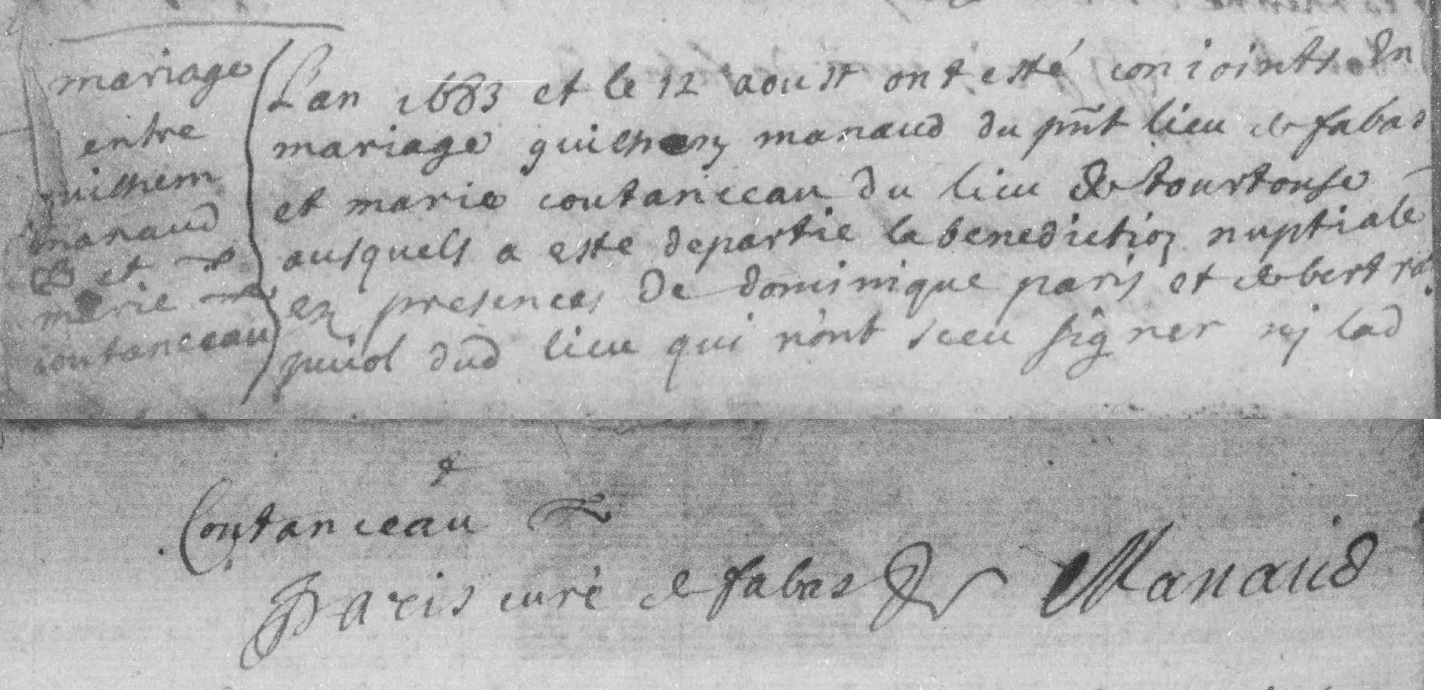 mariage
entre
guilhem
manaud
et
marie
coutanceau
L'an 1683 et le 12 aoust ont esté conioints En
mariage guilhem manaud du pñt lieu de fabas
et marie coutanceau du lieu de tourtouse
ausquels a este departie la benediction nuptiale
en presences de dominique paris et de bertrã
guiol dud lieu qui n'ont sceu signer nj lad
Coutanceau
Paris curé de fabas Manaud